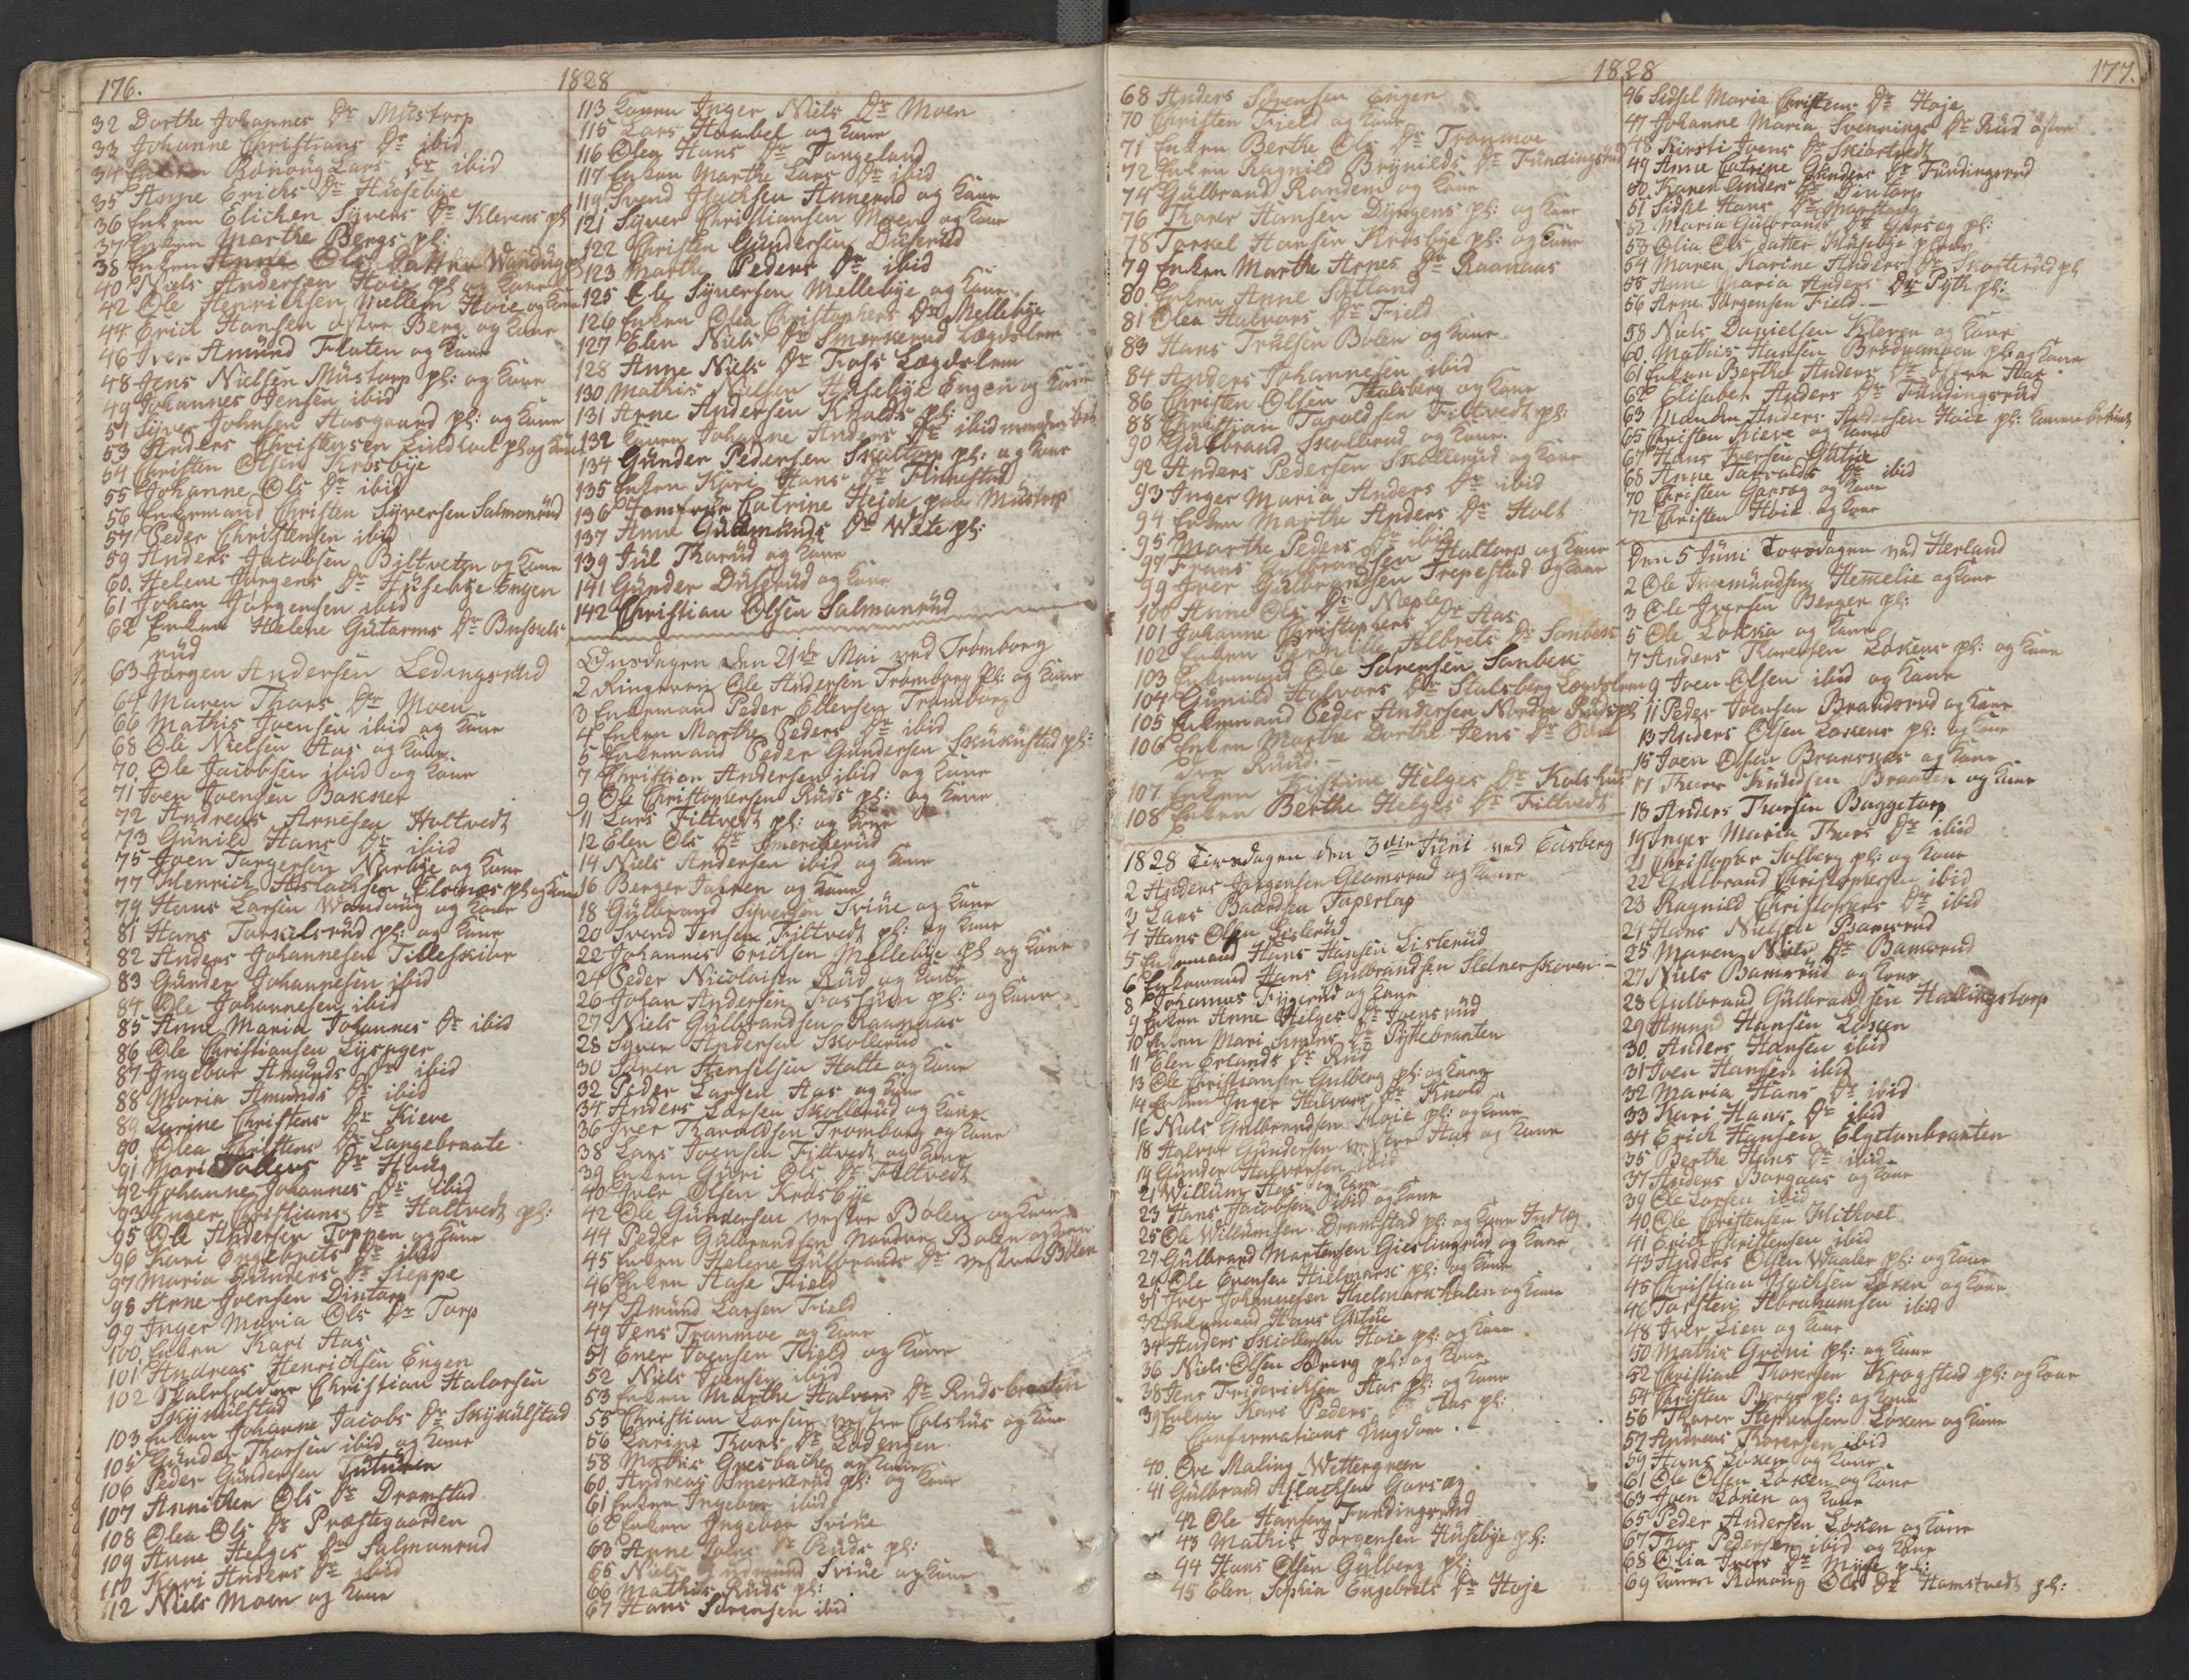 176.
1828
32 Dorthe Johannes Dr Mústorp
33 Johanne Christians Dr ibid
34 Enken Rónoug Lars Dr ibid
35 Anne Erichs Dr Húsebÿe
36 Enken Elichen Sÿvers Dr Klevens pl
37 Enken Marthe Bergs pl:
38 Enken Anne Ols datter Wandúg
40 Niels Andersen Hoie pl og Kone
42 Ole Henrichsen Mellem Hoie og Kone
44 Erich Hansen østre Berg og Kone
46 Iver Amúnd Flaten og Kone
48 Jens Nielsen Mústorp pl: og Kone
49 Johannes Jensen ibid
51 Sÿver Johnsen Aasgaard pl: og Kone
53 Anders Christensen Lindhol pl og Kone
54 Christen Olsen Krosbÿe
55 Johanne Ols Dr ibid
56 Enkemand Christen Sÿversen Salmonrúd
57 Peder Christensen ibid
59 Anders Jacobsen Biltveten og Kone
60. Helene Jørgens Dr Húsebÿe Engen
61 Johan Jørgensen ibid
62 Enken Helene Gútorms Dr Bússels
rúd
63 Jørgen Andersen Ledingsrúd
64 Maren Thors Dr Moen
66 Mathis Joensen ibid og Kone
68 Ole Nielsen Aas og Kone
70. Ole Jacobsen ibid og Kone
71 Joen Joensen Bakker
72 Andreas Arnesen Holtvedt
73 Gúnild Hans Dr ibid
75 Joen Torgersen Norbÿe og Kone
77 Henrich Aslachsen Elsnes pl og Kone
79 Hans Larsen Wandúg og Kone
81 Hans Torkelsrúd pl: og Kone
82 Anders Johannesen Tilleskior
83 Gúnder Johannesen ibid
84 Ole Johannesen ibid
85 Anne Maria Johannes Dr ibid
86 Ole Christiansen Lÿsager
87 Ingebor Amúnds Dr ibid
88 Maria Amúnds Dr ibid
89 Larine Christens Dr Kieve
90. Olea Christens Dr Langebraate
91 Mari Tollevs Dr Haúg
92 Johanne Johannes Dr ibid
93 Inger Christians Dr Holtvedt pl:
95 Ole Andersen Toppen og Kone
96 Kari Engebrets Dr ibid
97 Maria Gúnders Dr Sieppe
98 Arne Joensen Dintorp
99 Inger Maria Ols Dr Torp
100. Enken Kari Aas
101 Andreas Henrichsen Engen
102 Skoleholder Christian Halvorsen
Skÿkúlstad
103 Enken Johanne Jacobs Dr Skÿkúlstad
105 Gúnder Thorsen ibid og Kone
106 Peder Gúndersen Tútúren
107 Annichen Ols Dr Dramstad
108 Olea Ols Dr Præstegaarden
109 Anne Helges Dr Salmonrúd
110 Kari Anders Dr ibid
112 Niels Moen og Kone
113 Konen Inger Niels Dr Moen
115 Lars Haabel og Kone
116 Olea Hans Dr Tangeland
117 Enken Marthe Lars Dr ibid
119 Svend Isachsen Annerúd og Kone
121 Sÿver Christiansen Moen og Kone
122 Christen Gúndersen Dúserúd
123 Marthe Peders Dr ibid
125 Ole Sÿversen Mellebÿe og Kone
126 Enken Olea Christophers Dr Mellebÿe
127 Elen Niels Dr Smerkerud Lægdslem
128 Anne Niels Dr Foss Lægdslem
130 Mathis Nielsen Húsebÿe Engen og Kone
131 Arne Andersen Knolds pl:
132 Konen Johanne Anders Dr ibid
134 Gúnder Pedersen Skaltorp pl: og Kone
135 Enken Kari Hans Dr Finnestad
136 Jomfrúe Catrine Heide paa Mústorp
137 Anne Gúdmúnds Dr Wete pl:
139 Júl Thorúd og Kone
141 Gúnder Dúserúd og Kone
142 Christian Olsen Salmonrúd
Onsdagen den 21de Mai ved Trømborg
2 Ringeren Ole Andersen Tromborg pl: og Kone
3 Enkemand Peder Evensen Tromborg
4 Enken Marthe Peders Dr ibid
5 Enkemand Peder Gundersen Skúkústad pl:
7 Christian Andersen ibid og Kone
9 Ole Christophersen Rúds pl: og Kone
11 Lars Filtvedt pl: og Kone
12 Elen Ols Dr Smerkerúd
14 Niels Andersen ibid og Kone
16 Berger Jahren og Kone
18 Gúlbrand Sÿversen Sviúe og Kone
20 Svend Jensen Filtvedt pl: og Kone
22 Johannes Erichsen Mellebÿe pl og Kone
24 Peder Nicolaisen Rúd og Kone
26 Johan Andersen Fosshúm pl: og Kone
27 Niels Gúlbrandsen Raanaas
28 Sÿver Andersen Skollerúd
30 Søren Stenselsen Holte og Kone
32 Peder Larsen Aas og Kone
34 Anders Larsen Skollerúd og Kone
36 Iver Tharaldsen Tromborg og Kone
38 Lars Joensen Filtvedt og Kone
39 Enken Gúri Ols Dr Filtvedt
40 Iver Olsen Krosbÿe
42 Ole Gúndersen vestre Bolen og Kone
44 Peder Gúlbrandsen Nordre Bolen og Kone
45 Enken Helene Gúlbrands Dr vestre Bolen
46 Enken Aase Field
47 Amúnd Larsen Field
49 Jens Tronmoe og Kone
51 Ener Joensen Field og Kone
52 Niels Joensen ibid
53 Enken Marthe Halvors Dr Rudsbraaten
55 Christian Larsen vestre Colshús og Kone
56 Larine Thors Dr Lodengen
58 Mathis Gresbache og Kone
60 Andreas Smerkerúd pl: og Kone
61 Enken Ingebor ibid
62 Enken Ingebor Sviúe
63 Anne Joens Dr Rúds pl:
65 Niels Gúdmúnd Sviúe og Kone
66 Mathis Rúds pl:
67 Hans Sørensen ibid
1828
177.
68 Anders Sørensen Engen
70 Christen Field og Kone
71 Enken Berthe Ols Dr Tronmoe
72 Enken Ragnild Brÿnilds Dr Fúndingsrúd
74 Gúlbrand Randem og Kone
76 Thorer Hansen Dÿngens pl: og Kone
78 Torkel Hansen Krosbÿe pl: og Kone
79 Enken Marthe Arnes Dr Raanaas
80. Enken Anne Søtland
81 Olea Halvors Dr Field
83 Hans Trúlsen Bolen og Kone
84 Anders Johannesen ibid
86 Christen Olsen Stalsberg og Kone
88 Christian Toroldsen Filtvedt pl:
90 Gúlbrand Skollerúd og Kone
92 Anders Pedersen Skollerúd og Kone
93 Inger Maria Anders Dr ibid
94 Enken Marthe Anders Dr Holt
95 Marthe Peders Dr ibid
97 Frans Gúlbrandsen Haltorp og Kone
99 Iver Gúlbrandsen Trepestad og Kone
100 Anne Ols Dr Neple
101 Johanne Christophers Dr Aas
102 Enken Pernille Halbrets Dr Sonbek
103 Enkemand Ole Sørensen Sonbek
104 Gúnild Halvors Dr Stalsberg Lægdslem
105 Enkemand Peder Andersen Nordre Rúds pl
106 Enken Marthe Dorthe Jens Dr
dre Rúúd.
107 Enken Kistine Helges Dr Kolshús
108 Enken Berthe Helges Dr Filtvedt
1828 Tirsdagen den 3die Júni ved Eidsberg
2 Anders Jørgensen Glomsrud og Kone
3 Lars Baardsen Taperlap
4 Hans Olsen Lislerúd
5 Enkemand Hans Hansen Lislerúd
6 Enkemand Hans Gulbrandsen Slelnerskoven
8 Johannes Fÿgerud og Kone
9 Enken Anne Helges Dr Joensrúd
10 Enken Mari Simens Dr Pÿttebraaten
11 Elen Erlands Dr Rúd
13 Ole Christiansen Gulberg pl: og Kone
14 Enken Inger Halvors Dr Knold
16 Niels Gulbrandsen Hoie pl: og Kone
18 Halvor Gundersen vestre Aas og Kone
19 Gúnder Halvorsen ibid
21 Willúm Aas og Kone
23 Hans Jacobsen ibid og Kone
25 Ole Willumsen Dramstad pl: og Kone Indlæg
27 Gúlbrand Mortensen Gieslingrúd og Kone
29 Ole Evensen Hielmark pl: og Kone
31 Iver Johannesen Hielmarkhalen og Kone
32 Enkemand Hans Gútúe
34 Anders Skiollersen Hoie pl: og Kone
36 Niels Olsen Berg pl: og Kone
38 Jens Friderichsen Aas pl: og Kone
39 Enken Kari Peders Dr Aas pl:
Confirmations Ungdom.
40. Ove Maling Wettergreen
41 Gúlbrand Aslachsen Garseg
42 Ole Hansen Fundingsrúd
43 Mathis Jørgensen Húsebÿe pl:
44 Hans Olsen Gúlberg pl:
45 Elen Sophia Engebrets Dr Hoje
46 Sidsel Maria Christens Dr Hoje
47 Johanne Maria Svennings Dr Rúd østre
48 Kirsti Joens Dr Skiortvedt
49 Anne Catrine Gúnders Dr Fúndingsrud
50. Karen Anders Dr Dintorp
51 Sidsel Hans Dr Morstong
52 Maria Gúlbrands Dr Garseg pl:
53 Olia Ols datter Húsebÿe pladse
54 Maren Karine Anders Dr Skofterúd pl
55 Anne Maria Anders Dr Pÿth pl:
56 Arne Jørgensen Field.
58 Niels Danielsen Kleven og Kone
60. Mathis Hansen Brødremoen pl: og Kone
61 Enken Berthe Anders Dr østre Aas
62 Elisabet Anders Dr Fúndingsrúd
63 Manden Anders Andersen Hoie pl: Konen
65 Christen Kieve og Kone
67 Hans Iversen Gútúe
68 Anne Tarralds Dr ibid
70 Christen Garseg og Kone
72 Christen Hoie og Kone
Den 5 Júni Torsdagen ved Herland
2 Ole Ingemúndsen Hemelie og Kone
3 Ole Iversen Bergers pl:
5 Ole Løkka og Kone
7 Anders Thoresen Løkens pl: og Kone
9 Joen Olsen ibid og Kone
11 Peder Joensen Brandsrud og Kone
13 Anders Olsen Løkens pl: og Kone
15 Joen Olsen Braneraas og Kone
17 Thore Knúdsen Braaten og Kone
18 Anders Thorsen Baggetorp
19 Inger Maria Thors Dr ibid
21 Christopher Solberg pl: og Kone
22 Gulbrand Christophersen ibid
23 Ragnild Christophers Dr ibid
24 Hans Nielsen Bamrúd
25 Maren Niels Dr Bamsrud
27 Niels Bamsrúd og Kone
28 Gulbrand Gúlbrandsen Hallingstorp
29 Amund Hansen Løken
30. Anders Hansen ibid
31 Joen Hansen ibid
32 Maria Hans Dr ibid
33 Kari Hans Dr ibid
34 Erich Hansen Elgetunbraaten
35 Berthe Hans Dr ibid
37 Anders Borgaas og Kone
39 Ole Larsen ibid
40 Ole Christensen Hithoel
41 Erich Christensen ibid
43 Anders Olsen Waaler pl: og Kone
45 Christian Isachsen Løken og Kone
46 Torsten Abrahamsen ibid
48 Iver Lien og Kone
50 Mathis Grini pl: og Kone
52 Christian Thoresen Krogstad pl: og Kone
54 Christen Bergs pl: og Kone
56 Thorer Stephensen Løken og Kone
57 Andreas Thoresen ibid
59 Hans Løken og Kone
61 Ole Olsen Løken og Kone
63 Joen Løken og Kone
65 Peder Andersen Løken og Kone
67 Thor Pedersen ibid og Kone
68 Olia Ivers Dr Mÿre pl:
69 Konen Rónoúg Ols Dr Hamstvedt pl: